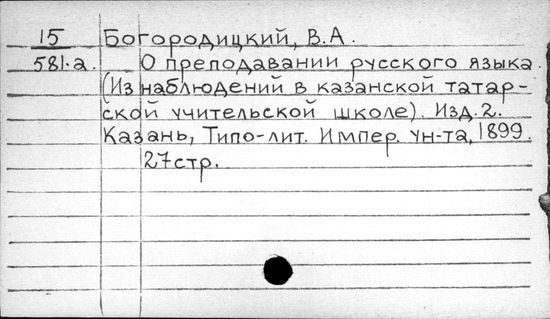 15 Богородицкий, В.А.
581.а. О преподавании русского языка.
(Из наблюдений в казанской татар-
ской учительской школе). Изд.2.
Казань, Типо-лит. Импер. ун-та, 1899.
27стр.